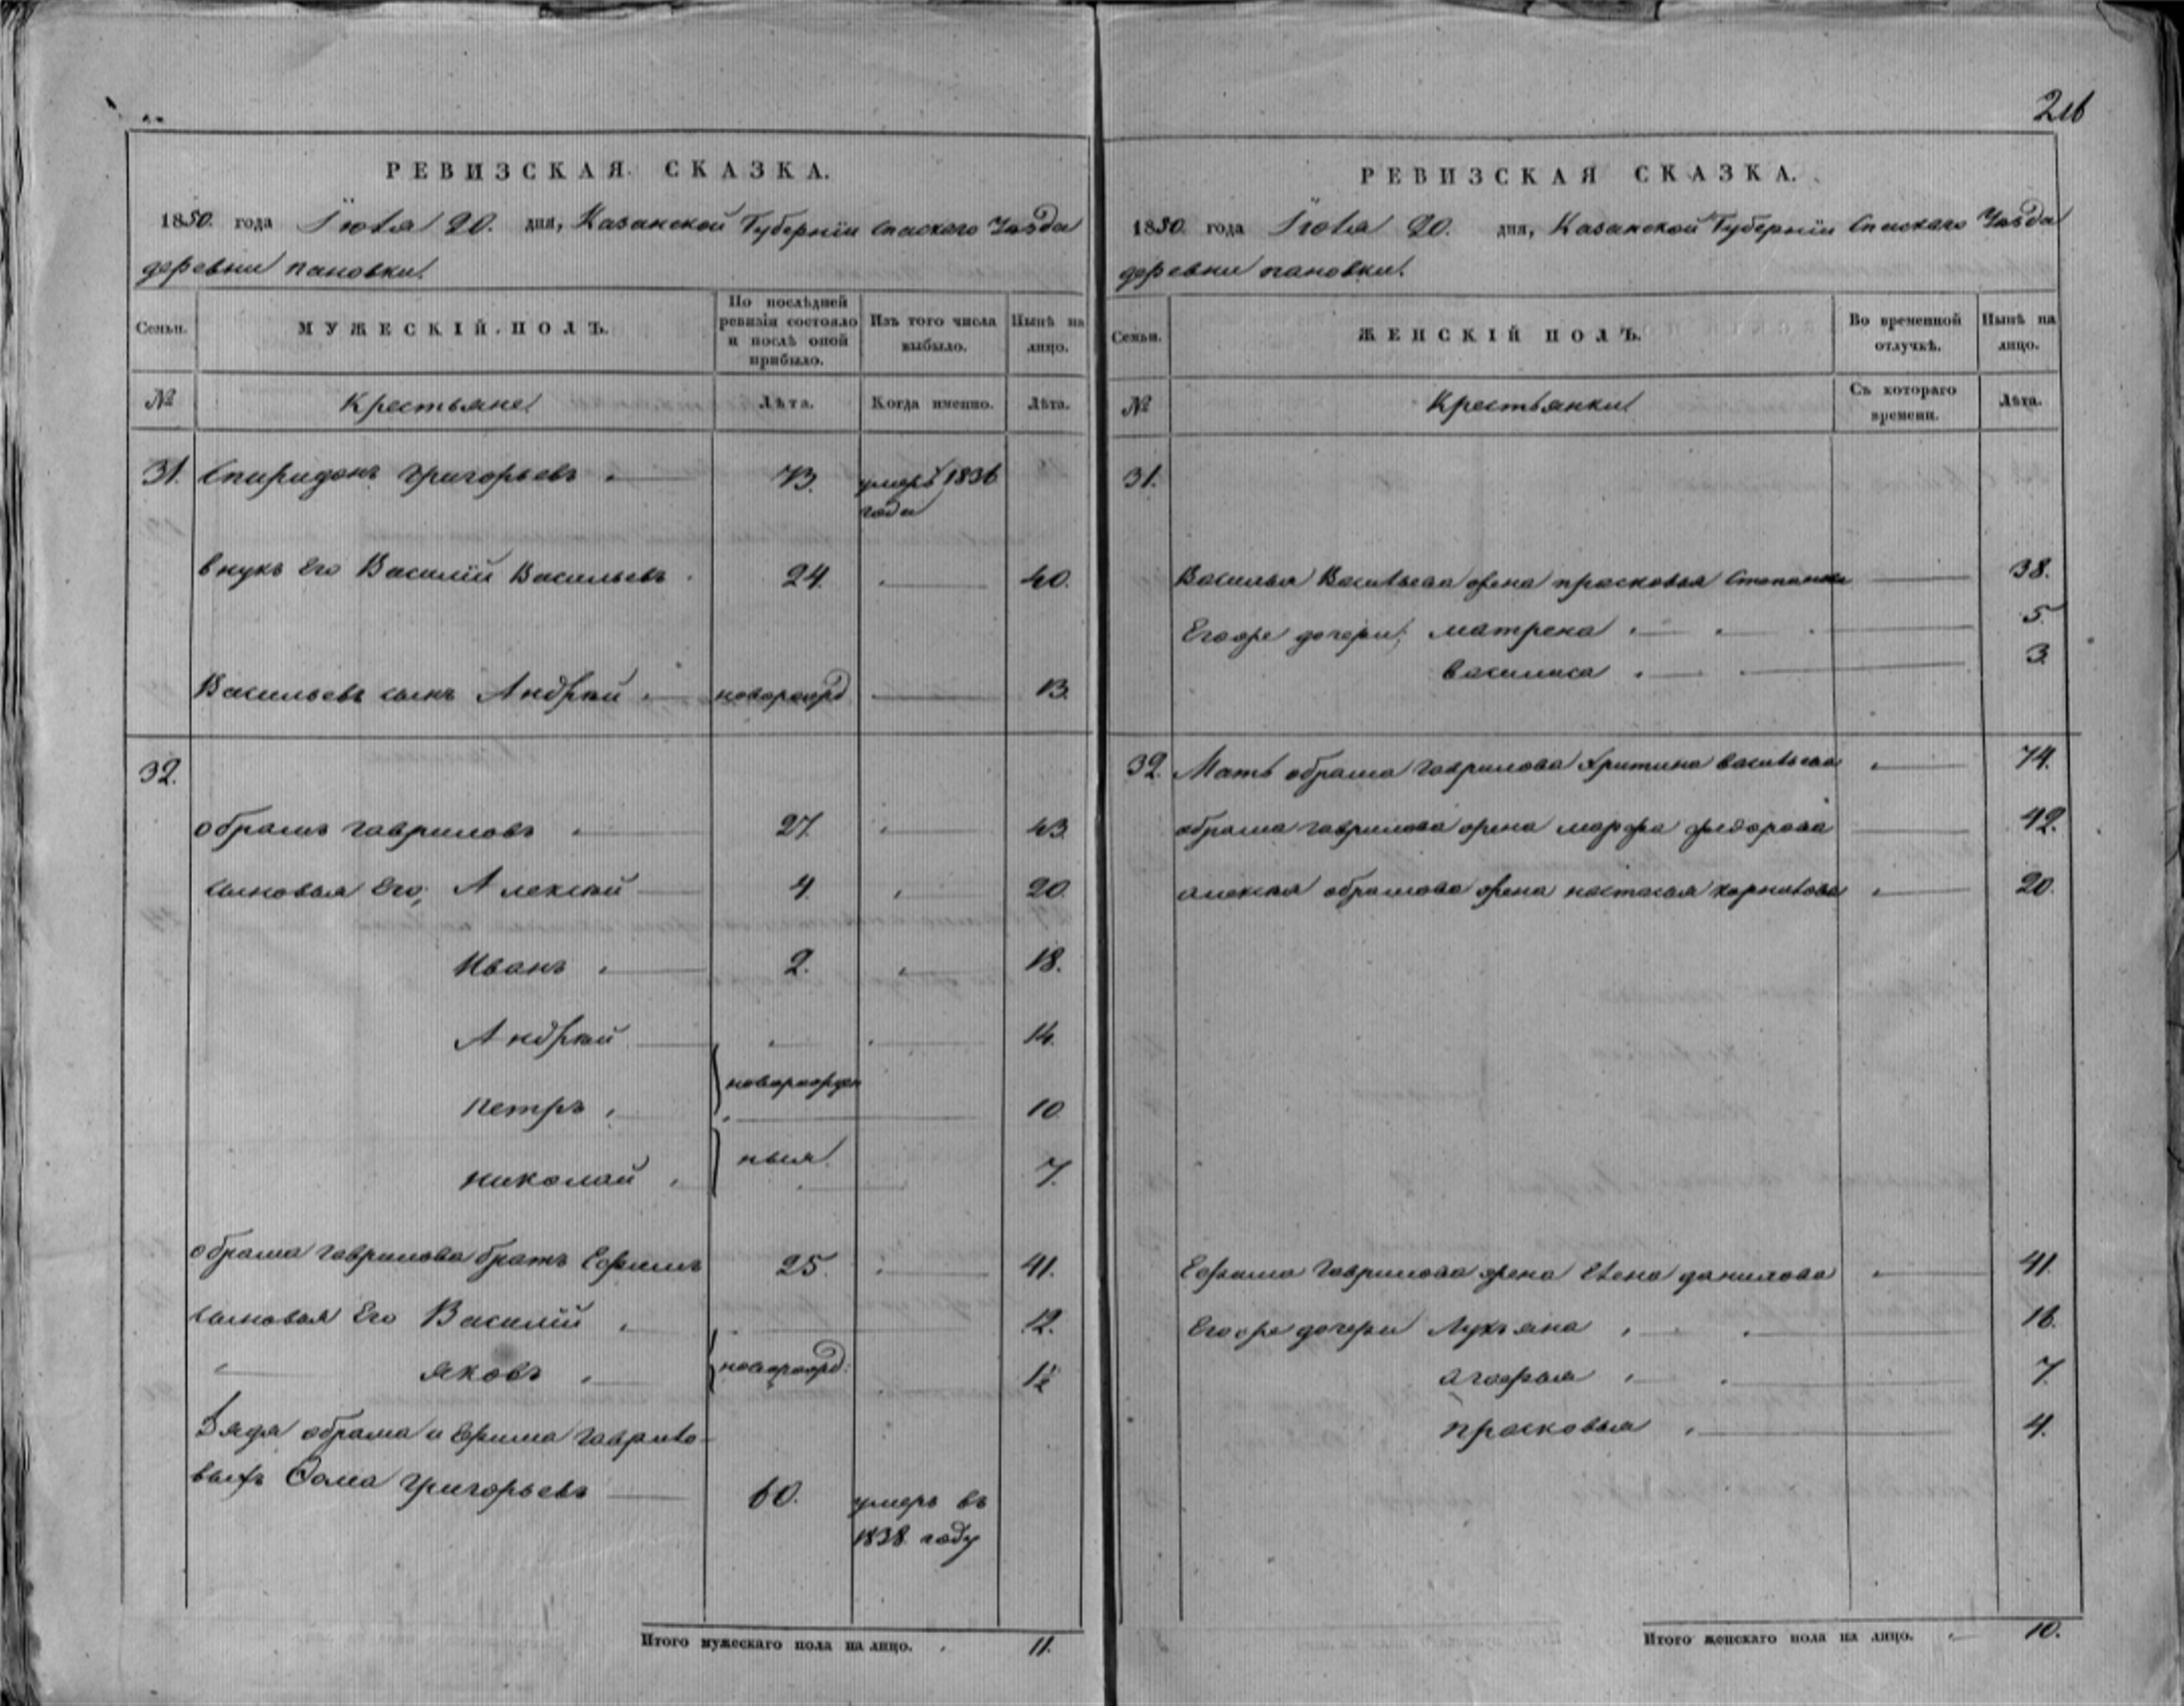 216
РЕВИЗСКАЯ СКАЗКА.
1850. года Іюля 20. дня, Казанской Губерніи Спаскаго Уѣзда
деревни пановки.
Семьи.
МУЖЕСКІЙ ПОЛЪ.
По послѣдней ревизіи состояло и послѣ оной прибыло.
Изъ того числа выбыло.
Нынѣ на лицо.
№
Крестьяне
Лѣта.
Когда именно.
Лѣта.
31. Спиридонъ григорьевъ 73. умеръ 1836
года
внукъ Его Василій Васильевъ 24. 40.
Васильевъ сынъ Андрѣй новорожд 13.
32.
обрамъ гавриловъ 27. 43.
сыновья Его, Алексѣй 4. 20.
Иванъ 2. 18.
Андрѣй 14.
новорожден
петръ 10
ныя
николай 7.
обрама гаврилова братъ Ефимъ 25. 41.
сыновья Его Василій 12.
яковъ новорожд: 1½
Дядя обрама и Ефима гаврило-
выхъ Фома григорьевъ 60. умеръ въ
1838 году
Итого мужескаго пола на лицо. 11.
РЕВИЗСКАЯ СКАЗКА.
1850 года Іюля 20. дня, Казанской Губерніи Спаскаго Уѣзда
деревни пановки.
Семьи.
ЖЕНСКІЙ ПОЛЪ.
Во временной отлучкѣ.
Нынѣ на лицо.
№
Крестьянки
Съ котораго времени.
Лѣта.
31.
Василья Васильева жена прасковья Степанова 38.
Егоже дочери; матрена 5.
василиса 3
32. Мать обрама гаврилова Хритина васильева 74.
обрама гаврилова жена марфа федорова 42.
алексѣя обрамова жена настасья корнилова 20.
Ефима гаврилова жена Елена данилова 41
Егоже дочери Лукѣяна 16.
агафья 7.
прасковья 4.
Итого женскаго пола на лицо. 10.